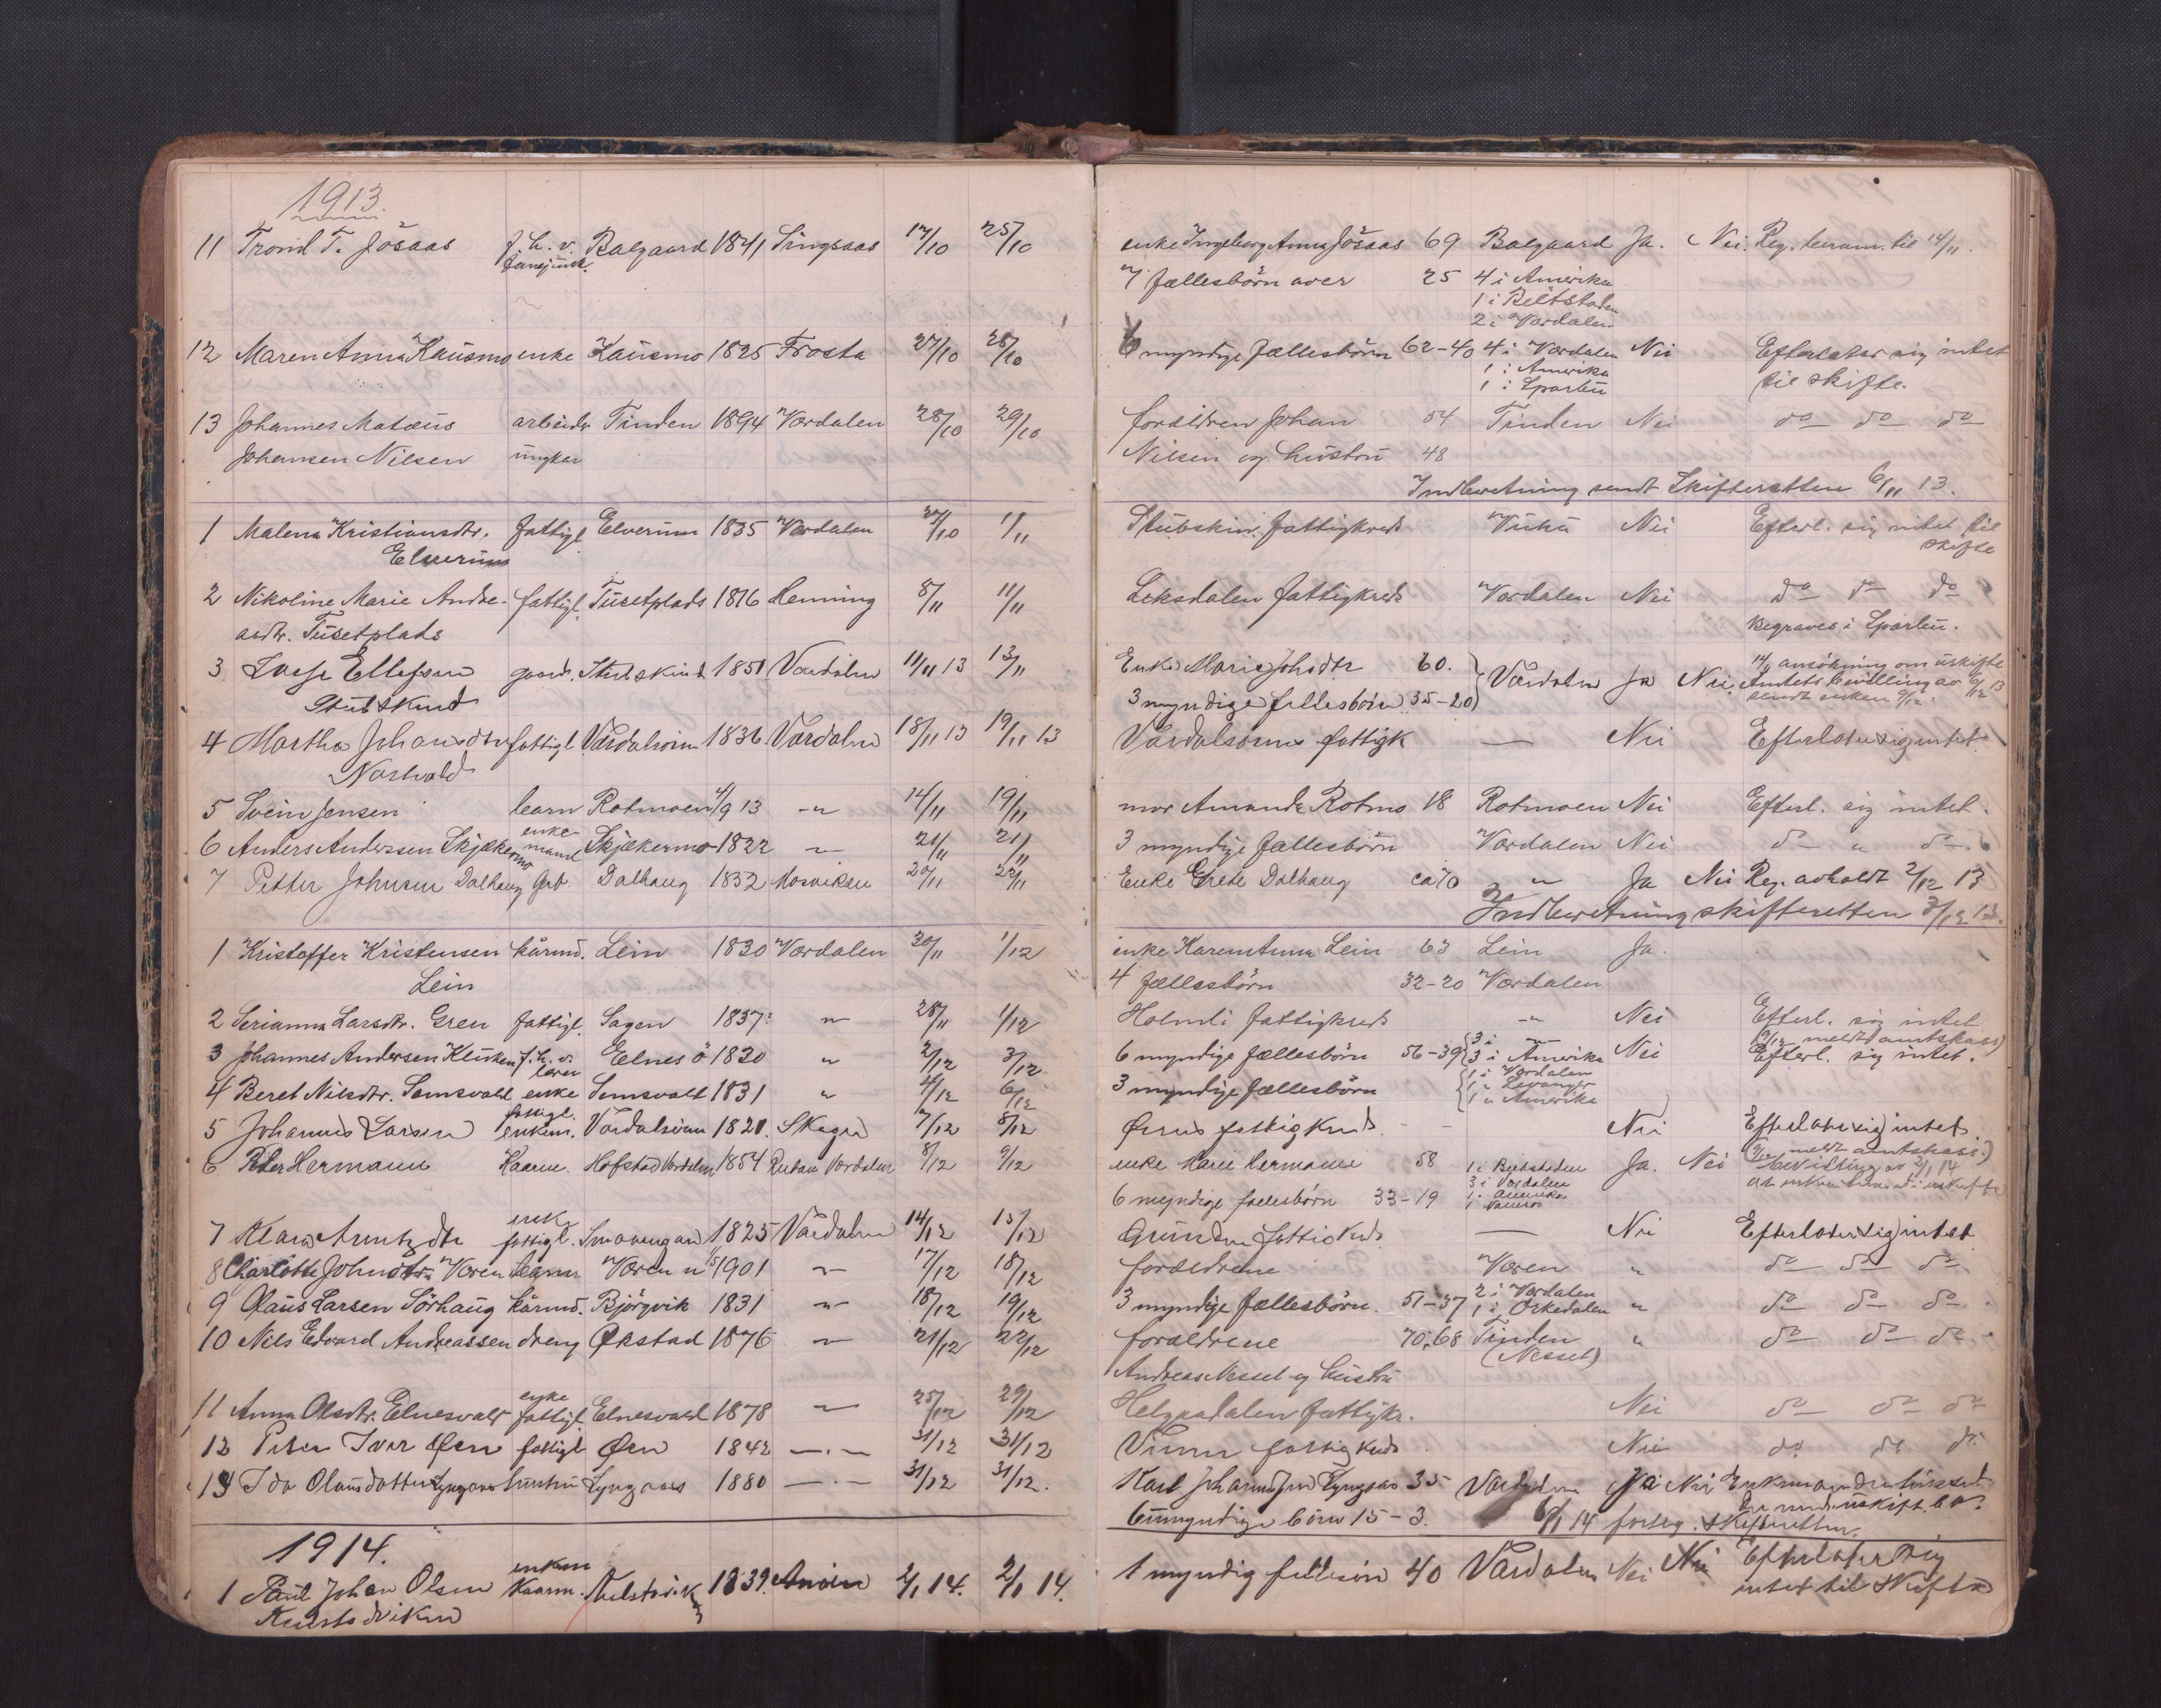 1913.
11 Trond T. Jösaas f. h. v. Balgaard 1841 Singsaas 17/10 25/10 enke Ingeborg Anna Jösaas 69 Balgaard Ja. Nei. Reg. beram. til 14/11.
7 fællesbörn over 25 4 i Amerika
1 i Beitstaden
2 i Værdalen
12 Maren Anna Hausmo enke Hausmo 1825 Frosta 27/10 28/10 6 myndige fællesbörn 62-40 4 i Værdalen Nei Efterlater sig intet
1 i Amerika til skifte.
1 i Sparbu
13 Johannes Matæus arbeider Tinden 1894 Værdalen 28/10 29/10 forældren Johan 54 Tinden Nei do do do
Johansen Nilsen ungkar Nilsen og hustru 48
Indberetning sendt Skifteretten 6/11 13.
1 Malena Kristiansdtr. fattigl Elverum 1835 Værdalen 27/10 1/11 Stubskin fattigkreds Vuku Nei Efterl. sig intet til
Elverum skifte
2 Nikoline Marie Andre- fattigl. Tusetplads 1816 Henning 8/11 11/11 Leksdalen fattigkreds Værdalen Nei do do do
asdtr. Tusetplads Begraves i Sparbu.
3 Ellefsen gaardb. Stubskind 1851 Værdalen 11/11 13 13/11 Enke Marie Johsdtr 60. Værdalen Ja Nei. 14/11 ansökning om uskifte
Stubskind 3 myndige fellesbörn 35-20 Amtets bevilling av 6/12 13
sendt enken 9/12.
4 Martha Johansdtr fattigl. Værdalsören 1836 Værdalen 18/11 13 19/11 13 Værdalsörens fattigk — Nei Efterlater sig intet
5 Svein Jensen barn Rotmoen 4/9 13 -"- 14/11 19/11 mor Amanda Rotmo 18 Rotmoen Nei Efterl. sig intet.
6 Anders Andersen Skjækermo enkemand Skjækermo 1822 -"- 21/11 21/11 3 myndige fællesbörn Værdalen Nei do " do
7 Petter Johnsen Dalhaug Dalhaug 1832 Mosviken 20/11 22/11 Enke Grete Dalhaug ca 70 " Ja Nei Reg. avholdt 2/12 13
Indberetning skifteretten 3/12 13.
1 Kristoffer Kristensen kårmd. Lein 1830 Værdalen 30/11 1/12 enke Karen Anna Lein 63 Lein Ja.
Lein 4 fællesbörn 32-20 Værdalen
2 Serianna Larsdtr. Gren fattigl. Sagen 1837 " 28/11 1/12 Holmli fattigkreds -"- Nei Efterl. sig intet
(9/12 meldt amtskass)
3 Johannes Andersen f. h. v. Eelnes ö 1830 " 2/12 3/12 6 myndige fællesbörn 56-39 3 i -"- Nei Efterl. sig intet.
3 i Amerika
4 Beret Nilsdtr. Semsvald enke Semsvald 1831 " 4/12 6/12 3 myndige fællesbörn 1 i Værdalen
1 " Levanger
1 " Amerika
5 Johannes Larsen fattigl. enkem. Værdalsören 1821. Skogn 7/12 8/12 Örens fattigkreds - - Nei Efterlater sig intet
(9/12 meldt amtskass.)
6 Peter Hermann Kaarm. Hofstad Værdalen 1854 Værdalen 8/12 9/12 enke Marie Hermann 58 1 i Beitstaden Ja. Nei bevilling av 2/1 14
6 myndige fællesbörn 33-19 3 i Værdalen
1 i Amerika
1 Namsos
7 Klara Arntzdtr enk fattigl. 1825 Værdalen 14/12 15/12 Grunden fattigkrds. — Nei Efterlater sig intet
8 Charlotte Johnsdtr Væren barn Væren 1901 -"- 17/12 18/12 forældrene Væren " do do do
9 Olaus Larsen Sörhaug kårmd. Björgvik 1831 -"- 18/12 19/12 3 myndige fællesbörn. 51-37 2 i Værdalen " do do do
1 i Orkedalen
10 Nils Edvard Andreassen dreng Økstad 1876 -"- 21/12 22/12 forældrene 70, 68 Tinden " do do do
(Nessel)
Andreas Nessel og hustru
11 Anna Olsdtr. Elnesvald enke fattigl Elnesvald 1878 -"- 25/12 29/12 Helgaadalen fattigkr. Nei do do do
12 Iver Øen fattigl Øen 1842 -"- 31/12 31/12 Vinne fattigkrds Nei do do do
13 Ida Olausdatter Lyngaas hustru Lyngaas 1880 -"- 31/12 31/12. Karl Johannesen Lyngaas 35 Værdalen Ja Nei
6 umyndige börn 15-3. 6/1 14 skifteretten.
1914.
1 Paul Johan Olsen enkem Kaarm. 1839. 2/1 14. 2/1 14. 1 myndig fellesön 40 Værdalen Nei Nei Efterlater sig
intet til skifte